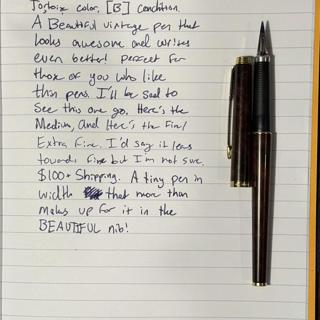 Tortoise color, [B] condition.
A Beautiful vintage pen that
looks awesome and writes
even better! perfect for
those of you who like
thin pens. I'll be sad to
see this one go. Here's the
Medium, and Here's the Fine/
Extra Fine. I'd say it leans
towards fine but I'm not sure.
$100+ Shipping. A tiny pen in
width that more than
makes up for it in the
BEAUTIFUL nib!